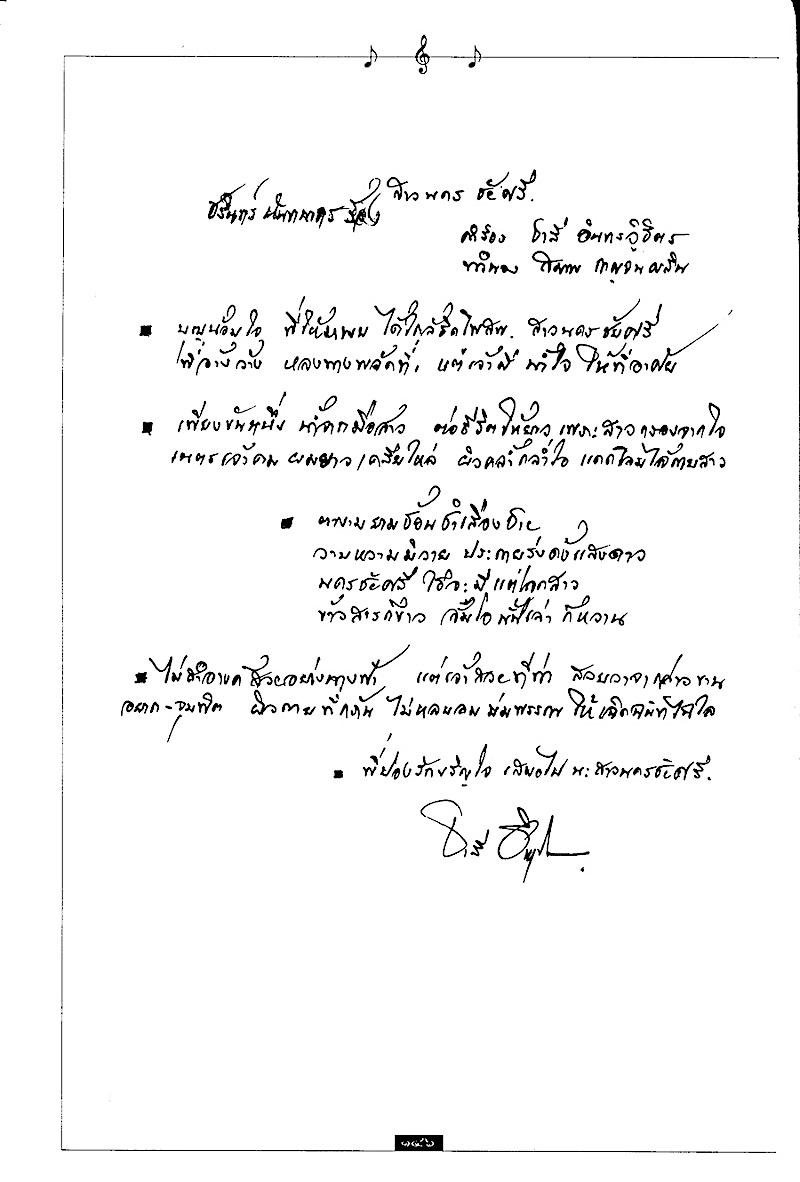 สาวนคร ชัยศรี.
ชรินทร์ นันทนาคร ร้อง
คำร้อง ชาลี อินทรวิจิตร
ทำนอง สมาน กาญจนผลิน
บุญน้อมใจ พี่ให้มาพบ ได้ใกล้ชิดไพสพ. สาวนครชัยศรี
พี่อ้างว้าง หลงทางพลัดที่ แต่เจ้ามี น้ำใจ ให้ที่อาศัย
เพียงขันหนึ่ง น้ำจากมือสาว ต่อชีวิตให้ยาว เพราะสาวกรองจากใจ
เนตรเจ้าคม ผมยาวเคลียไหล่ ผิวคล้ำกล้ำใจ แดดไล้
ตาบามยามช้อนชำเลืองชาย
วาบหวามมิวาย ประกายรุ่งดังแสงดาว
นครชัยศรี ใช่จะมีแต่โฉมสาว
ข้าวสารก็ขาว ส้มโอ ก็หวาน
ไม่สำอางค์ สวยอย่างนางฟ้า แต่เจ้าสวยที่ท่า
ผิวกาย ไม่หลบ ให้
พี่ปองรักขวัญใจ เสมอไป นะสาวนครชัยศรี.
๑๔๖